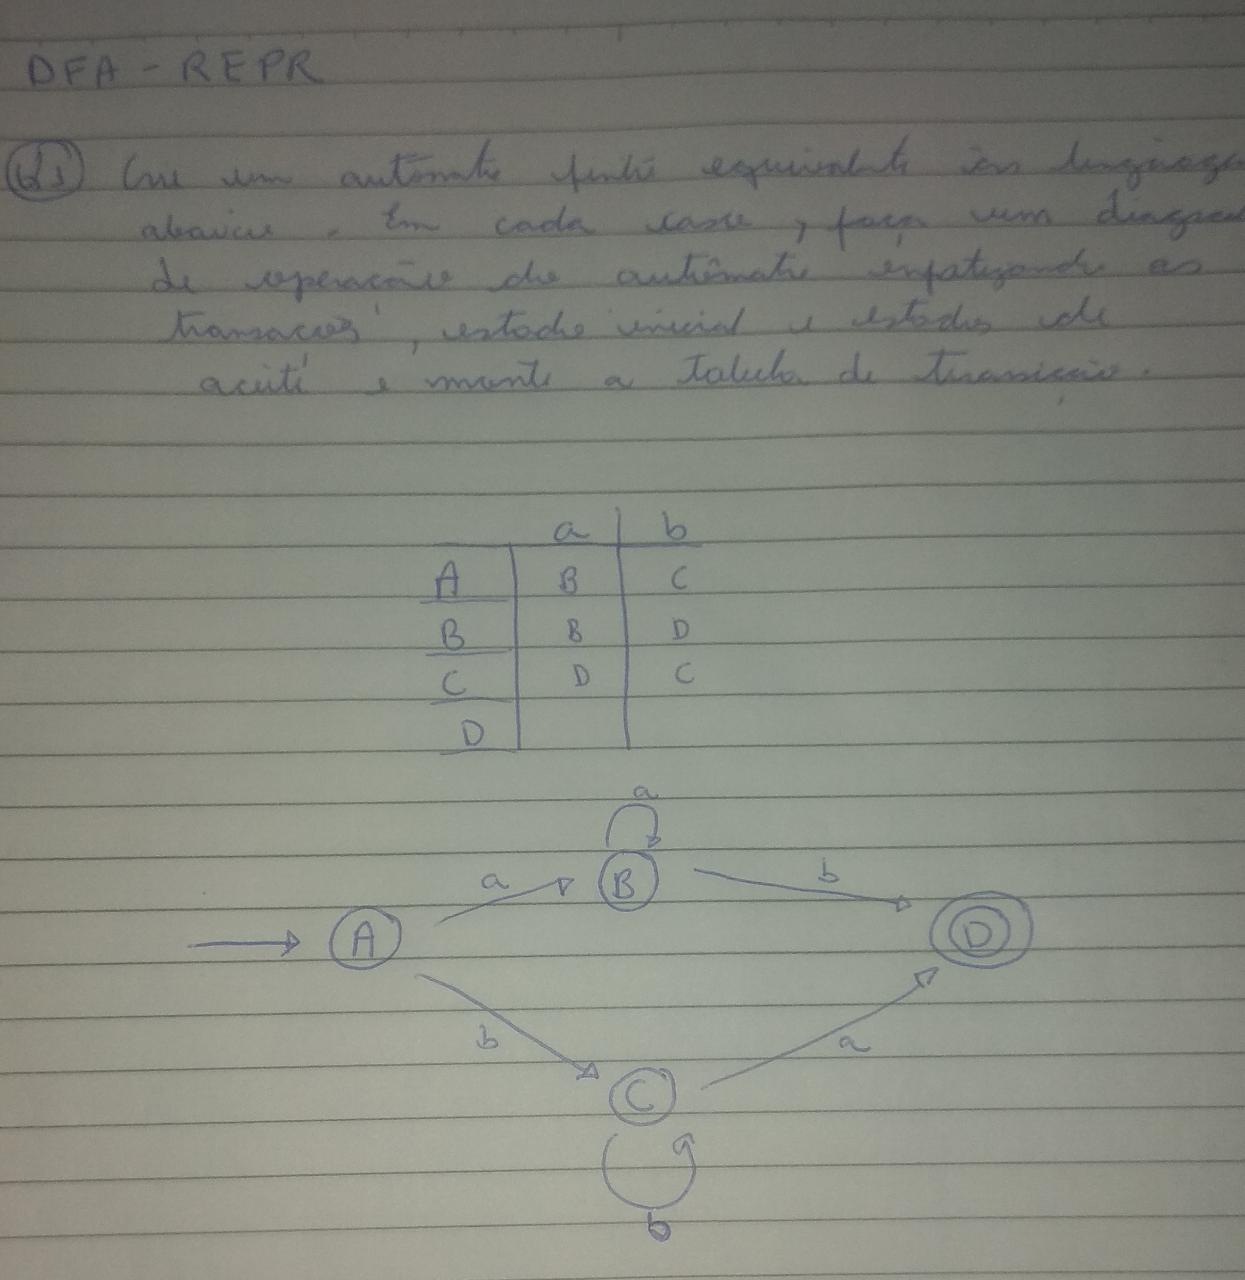 DFA - REPR
Q1) Crie um autômato finito equivalente às linguagens
abaixo. Em cada caso, faça um diagrama
de operação do autômato enfatizando as
transações, estado inicial e estados de
aceite e monte a tabela de transição.
a b
A B C
B B D
C D C
D
a
a B b
A D
b C a
b